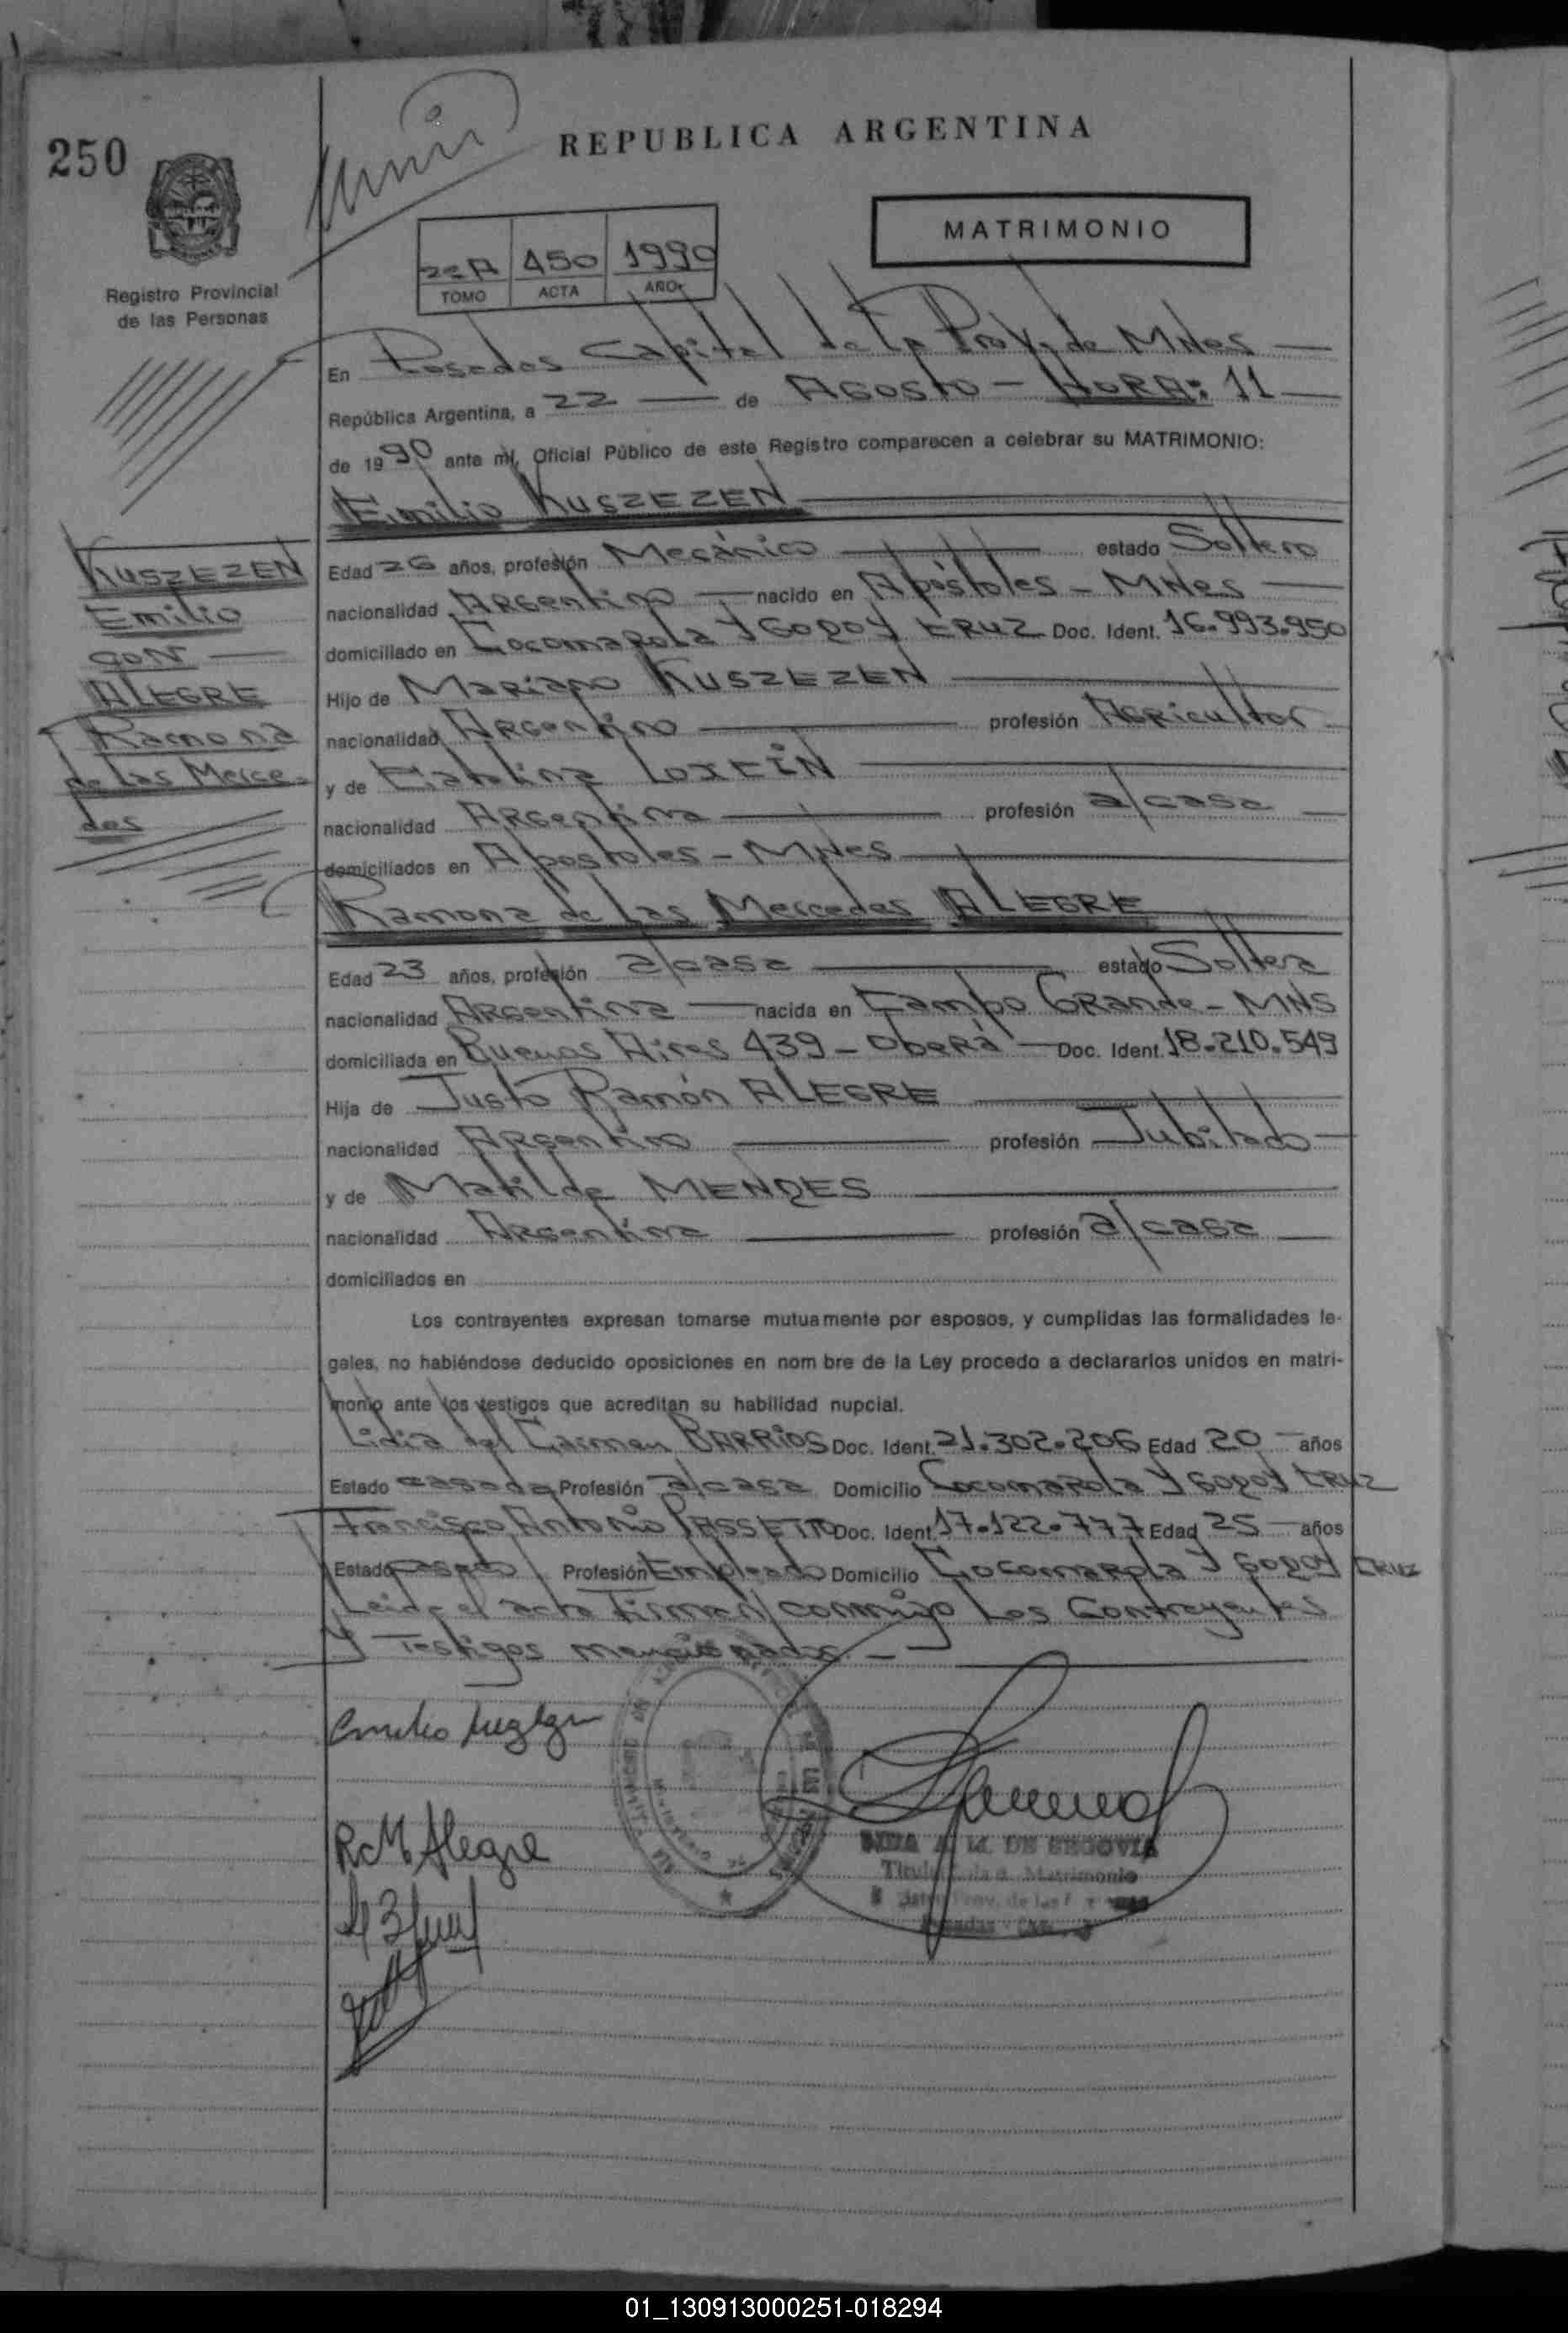 250
REPUBLICA ARGENTINA
MATRIMONIO
2=A 450 1990
TOMO ACTA AÑO
Registro Provincial
de las Personas
En Posadas Capital de la Prov. de MNes
República Argentina, a 22 de AGOSTO - HORA: 11
de 1990 ante mí, Oficial Público de este Registro comparecen a celebrar su MATRIMONIO:
Emilio KUSZEZEN
KUSZEZEN
Emilio
CON
ALEGRE
Ramona
de las Merce-
des
Edad 26 años, profesión Mecánico estado Soltero
nacionalidad Argentino nacido en Apóstoles - MNes
domiciliado en Cocomarola y Godoy CRUZ Doc. Ident. 16.993.950
Hijo de Mariano KUSZEZEN
nacionalidad Argentino profesión Agricultor
y de Catalina
nacionalidad Argentina profesión a/casa
domiciliados en Apostoles - MNes
Ramona de las Mercedes ALEGRE
Edad 23 años, profesión a/casa estado Soltera
nacionalidad Argentina nacida en Campo GRande - MNS
domiciliada en Buenos Aires 439 - Oberá Doc. Ident. 18.210.549
Hija de Justo Ramón ALEGRE
nacionalidad Argentino profesión Jubilado
y de Matilde MENDES
nacionalidad Argentina profesión a/casa
domiciliados en
Los contrayentes expresan tomarse mutuamente por esposos, y cumplidas las formalidades le-
gales, no habiéndose deducido oposiciones en nom bre de la Ley procedo a declararlos unidos en matri-
monio ante los testigos que acreditan su habilidad nupcial.
Lidia del Carmen BARRIOS Doc. Ident. 21.302.206 Edad 20 años
Estado casada Profesión a/casa Domicilio Cocomarola y Godoy CRUZ
Francisco Antonio PASSETTO Doc. Ident. 17.122.777 Edad 25 años
Estado casado Profesión Empleado Domicilio Cocomarola y Godoy CRUZ
Leida el acta Firman conmigo Los Contrayentes
y Testigos mencionados. -
Emilio
R.M. Alegre
A. M. DE SEGOVIA
Matrimonio
01_130913000251-018294